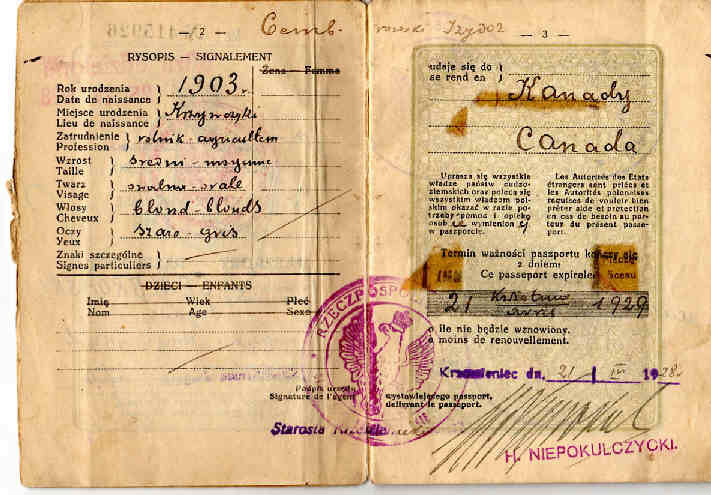 — 2 —
Cemb
RYSOPIS — SIGNALEMENT
Żona — Femme
Rok urodzenia
Date de naissance } 1903 r.
Miejsce urodzenia
Lieu de naissance }
Zatrudnienie
Profession } rolnik - agriculteur
Wzrost
Taille } średni - moyenne
Twarz
Visage } owalna - ovale
Włosy
Cheveux } blond - blonds
Oczy
Yeux } szare - gris
Znaki szczególne
Signes particuliers }
DZIECI — ENFANTS
Imię Wiek Płeć
Nom Age Sexe
Podpis urzędu
Signature de l'agent
Starosta
RZECZPOSPO
— 3 —
Izydor
udaje się do
se rend en }
Kanady
Canada
Uprasza się wszystkie
władze państw cudzo-
ziemskich oraz poleca się
wszystkim władzom pol-
skim okazać w razie po-
trzeby pomoc i opiekę
osobie wymienionej
w paszporcie.
Les Autorités des Etats
étrangers sont priées et
les Autorités polonaises
requises de vouloir bien
prêter aide et protection
en cas de besoin au por-
teur du présent passe-
port.
Termin ważności paszportu kończy się
z dniem:
Ce passeport expire le
21 kwietnia 1929
avril
o ile nie będzie wznowiony.
à moins de renouvellement.
Krzemieniec dn. 21 / IV 1928
wystawiającego paszport.
délivrant le passeport.
H. NIEPOKULCZYCKI.